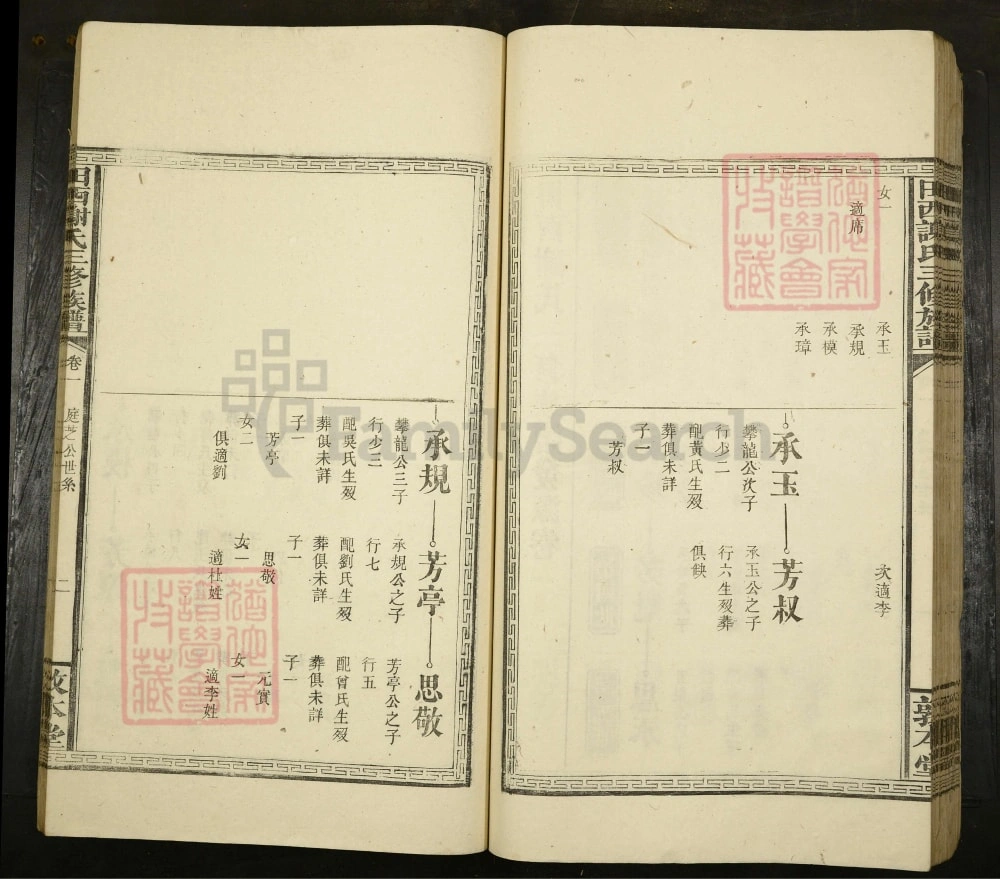 田西謝氏三修族譜
敦本堂
承玉
承規
承模
承璋
女一
適席
次適李
承玉
攀龍公次子
行少二
配黃氏生歿
葬俱未詳
子一
芳叔
芳叔
承玉公之子
行六生歿葬
俱缺
承規
攀龍公三子
行少三
配吳氏生歿
葬俱未詳
子一
芳亭
女二
俱適劉
芳亭
承規公之子
行七
配劉氏生歿
葬俱未詳
子一
思敬
女一
適杜姓
思敬
芳亭公之子
行五
配曾氏生歿
葬俱未詳
子一
元實
女一
適李姓
田西謝氏三修族譜
卷一
庭芝公世系
二
敦本堂
譜學會
收藏
譜學會
收藏
FamilySearch